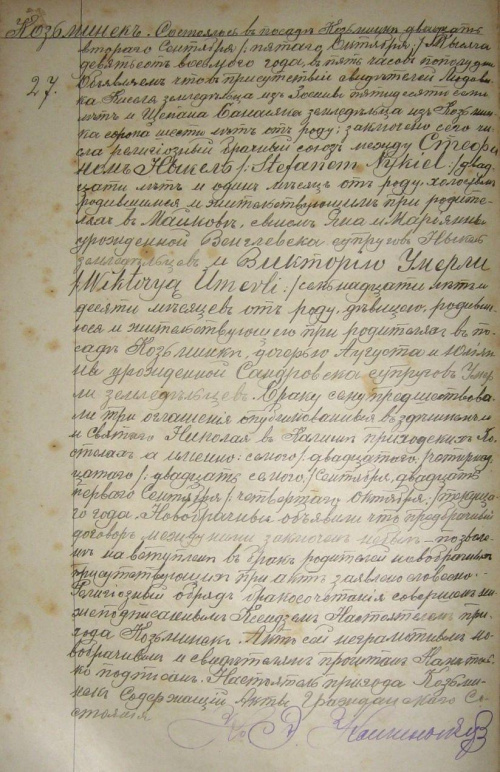 Козьминек. Состоялось в посаде Козьминек двадцать
втораго Сентября /: пятаго Октября :/ тысяча
девятьсот восьмого года, в пять часов пополудни.
27. Объявляем что в присутствии свидетелей Людви-
ка Киселя земледельца из пятидесяти семи
лет и Щепана земледельца из Козьмин-
ка сорока шести лет от роду; заключено сего чи-
сла религиозный брачный союз между Стефа-
ном Ныкель /: Stefanem Nykiel :/ двад-
цати лет и один месяц от роду, холостым
родившимся и жительствующим при родите-
лях в Майкове, сыном Яна и Марианны
урожденной Венглевска супругов Ныкель
земледельцев и Викторию Умерли
/: Wiktoryą Umerli :/ семнадцати лет и
десяти месяцев от роду, девицею, родивш-
юся и жительствующею при родителях в по-
саде Козьминек, дочерью Августа и Юлиан-
ны урожденной Сандровска супругов Умер-
ли земледельцев. Браку сему предшествова-
ли три оглашения опубликованныя в здешнем
и Святаго Николая в Калише приходских Ко-
стелах а именно: седьмого /: двадцатого :/ четырнад-
цатаго /: двадцать седьмого :/ Сентября, двадцать
перваго Сентября /: четвертаго Октября :/ текуща-
го года. Новобрачные объявили что предбрачный
договор между ними заключен небыл – позволе-
ние на вступление в брак родителей новобрачных
присутствующих при акте заявлено словесно.
Религиозный обряд бракосочетания совершен ни-
жеподписавшимся Ксендзом Настоятелем при-
хода Козьминек. Акт сей неграмотным но-
вобрачным и свидетелям прочитан Нами толь-
ко подписан. Настоятель прихода Козьми-
нек Содержащий Акты Гражданского Со-
стояния